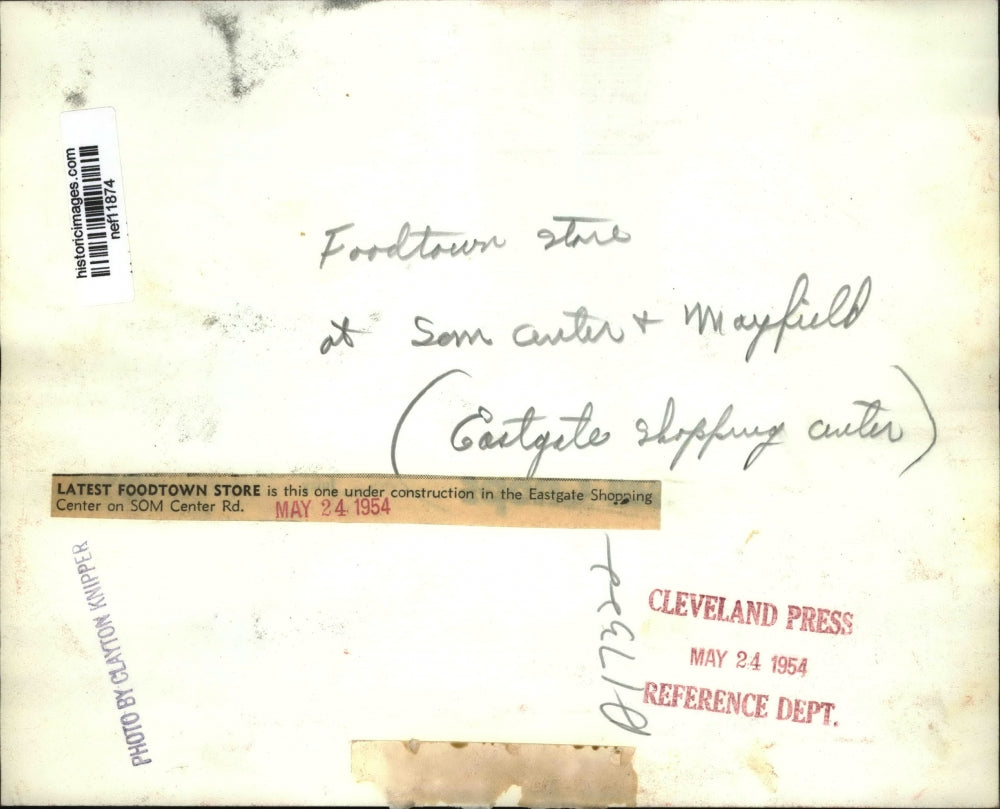 historicimages.com
nef11874
Foodtown store
at Som center + Mayfield
(Eastgate shopping center)
LATEST FOODTOWN STORE is this one under construction in the Eastgate Shopping
Center on SOM Center Rd.
MAY 24 1954
PHOTO BY CLAYTON KNIPPER
CLEVELAND PRESS
MAY 24 1954
REFERENCE DEPT.